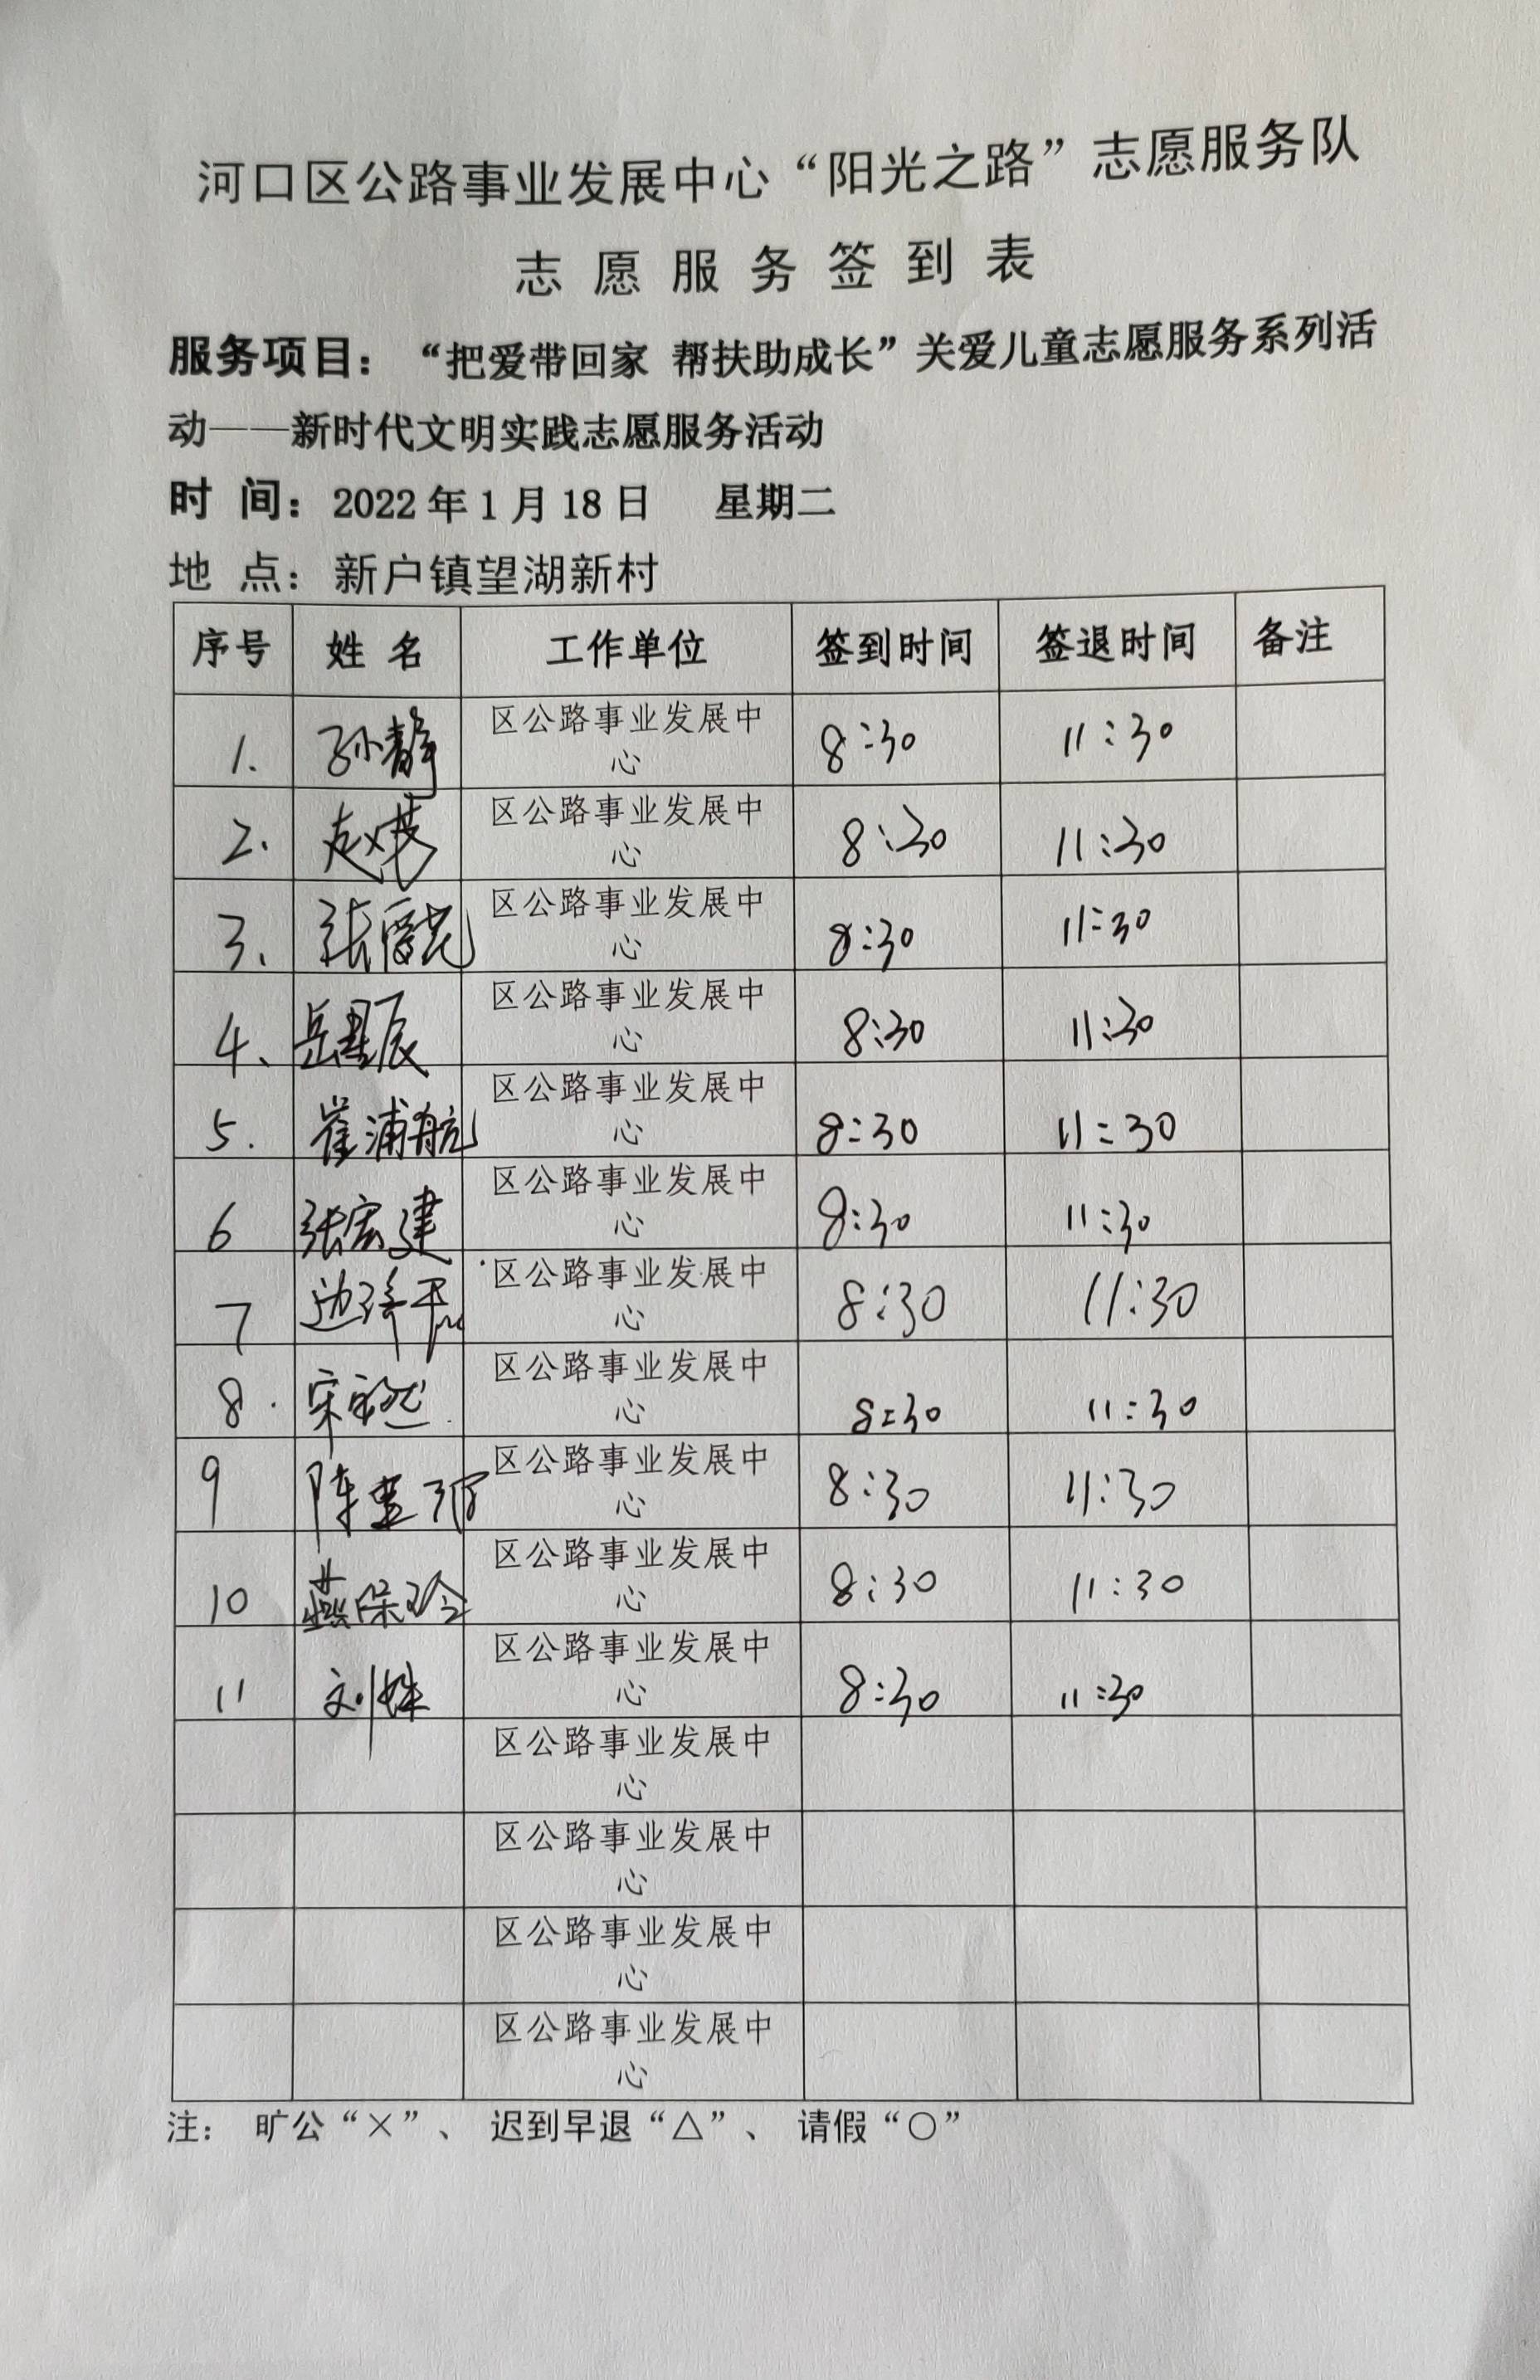 河口区公路事业发展中心“阳光之路”志愿服务队
志 愿 服 务 签 到 表
服务项目：“把爱带回家 帮扶助成长”关爱儿童志愿服务系列活
动——新时代文明实践志愿服务活动
时 间：2022年1月18日 星期二
地 点：新户镇望湖新村
序号 姓 名 工作单位 签到时间 签退时间 备注
1. 孙静 区公路事业发展中心 8:30 11:30
2. 区公路事业发展中心 8:30 11:30
3、 区公路事业发展中心 8:30 11:30
4、 岳晨辰 区公路事业发展中心 8:30 11:30
5. 崔浦航 区公路事业发展中心 8:30 11:30
6 张宏建 区公路事业发展中心 8:30 11:30
7 区公路事业发展中心 8:30 11:30
8. 区公路事业发展中心 8:30 11:30
9 区公路事业发展中心 8:30 11:30
10 燕保玲 区公路事业发展中心 8:30 11:30
11 刘姝 区公路事业发展中心 8:30 11:30
区公路事业发展中心
区公路事业发展中心
区公路事业发展中心
区公路事业发展中心
注： 旷公“×”、 迟到早退“△”、 请假“○”